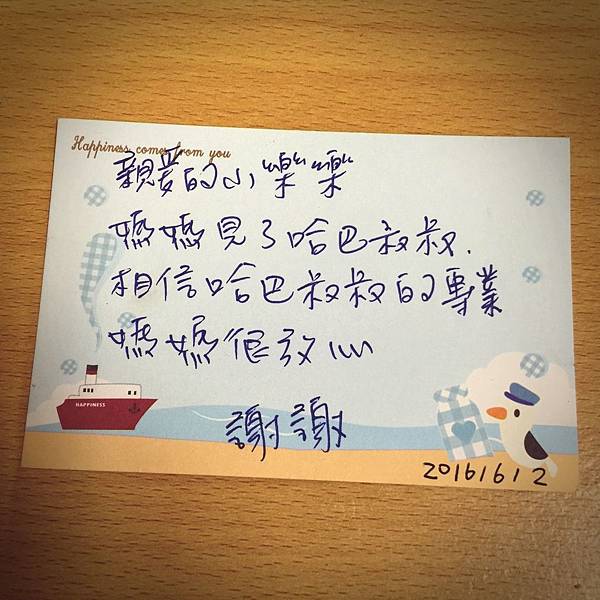 Happiness comes from you
親愛的小樂樂
媽媽見了哈巴叔叔.
相信哈巴叔叔的專業
媽媽很放心
HAPPINESS
謝謝
2016/6/2